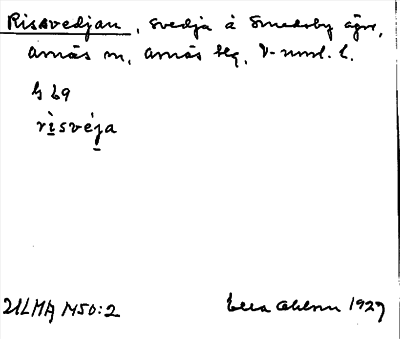 Rissvedjan, svedja å Smedsby ägor,
Arnäs sn, Arnäs tlg, V-nrrl. l.
G 69
rìsvéja
ULMA 1450:2 Ella Ohlson 1927